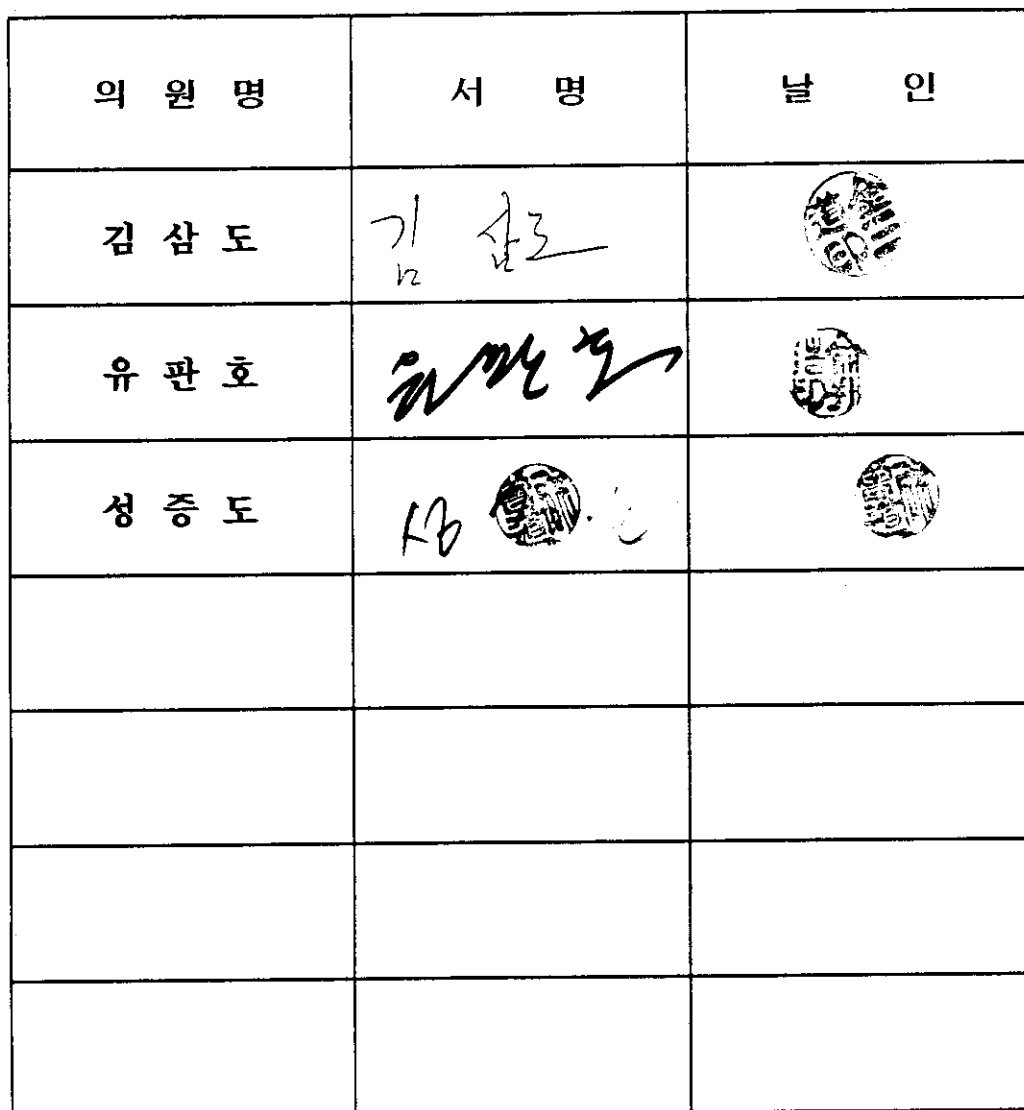 의 원 명 서 명 날 인
김 삼 도 김 삼도
유 판 호 유판호
성 증 도 성